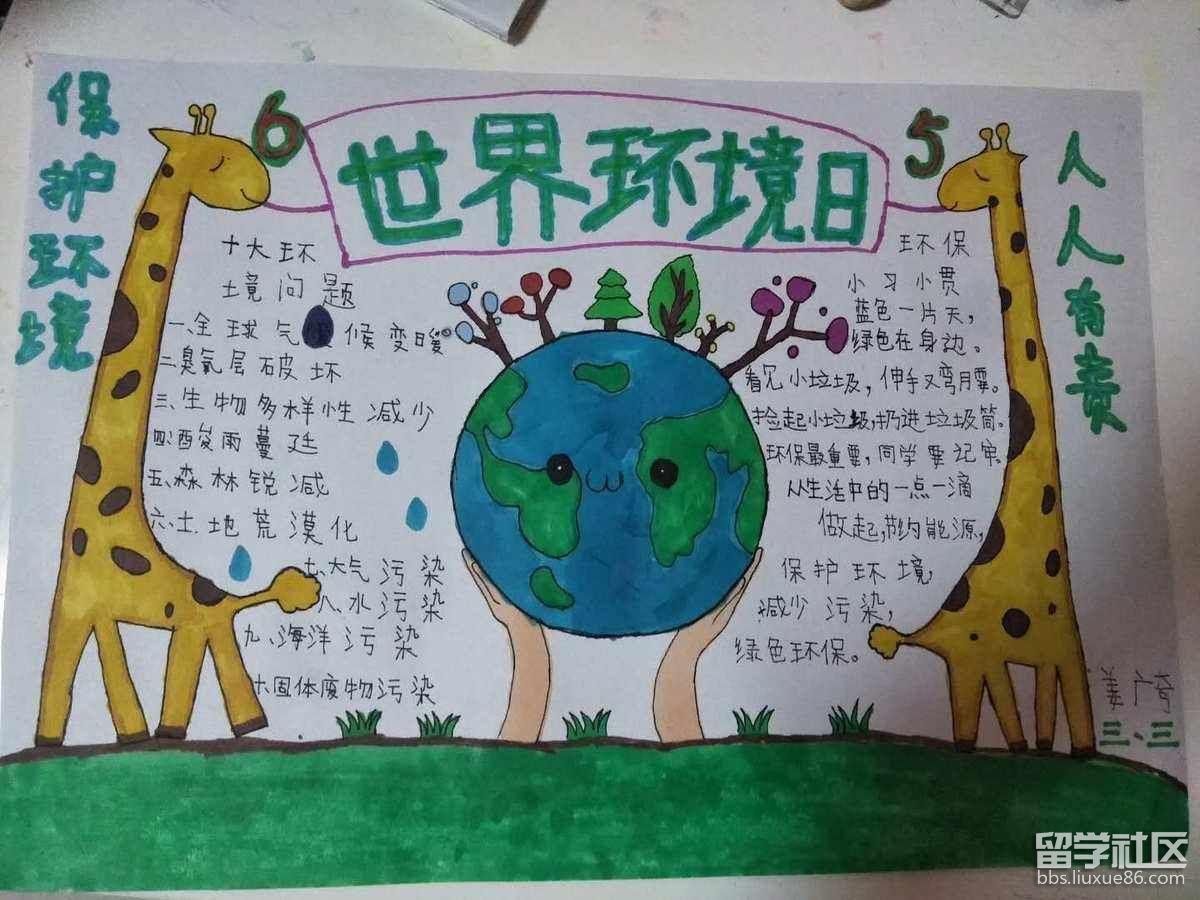 保护环境
6
世界环境日
5
人人有责
十大环
境问题
一、全球气候变暖
二臭氧层破坏
三、生物多样性减少
四、酸雨蔓延
五、森林锐减
六、土地荒漠化
七、大气污染
八、水污染
九、海洋污染
十、固体废物污染
环保
小习小贯
蓝色一片天，
绿色在身边。
看见小垃圾，伸手又弯月要。
捡起小垃圾，扔进垃圾筒。
环保最重要，同学要记牢。
从生活中的一点一滴
做起，节约能源，
保护环境，
减少污染，
绿色环保。
姜广奇
三、三
留学社区
bbs.liuxue86.com